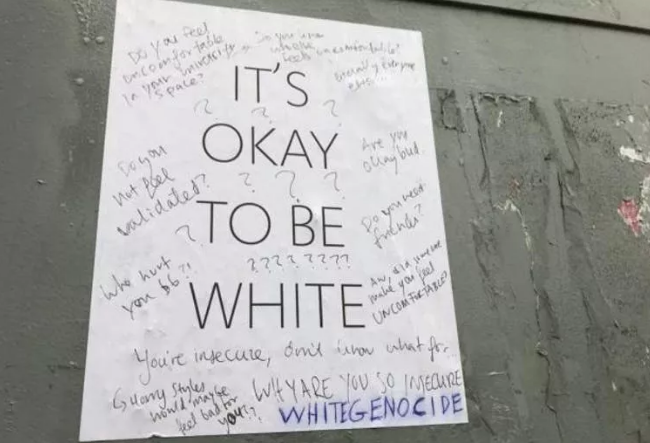 Do you feel
uncomfortable
in your university
space?
Do you know
who else
feels uncomfortable?
literally everyone
else...
IT'S
? ? ?
OKAY
? ? ?
TO BE
? ? ? ? ? ? ?
WHITE
Do you
not feel
validated?
?
Who hurt
you bb?!
Are you
okay bud
Do you need
friends?
Aw, did someone
make you feel
UNCOMFORTABLE?
You're insecure, don't know what for..
Harry Styles
would maybe
feel bad for
you??
WHY ARE YOU SO INSECURE
WHITEGENOCIDE